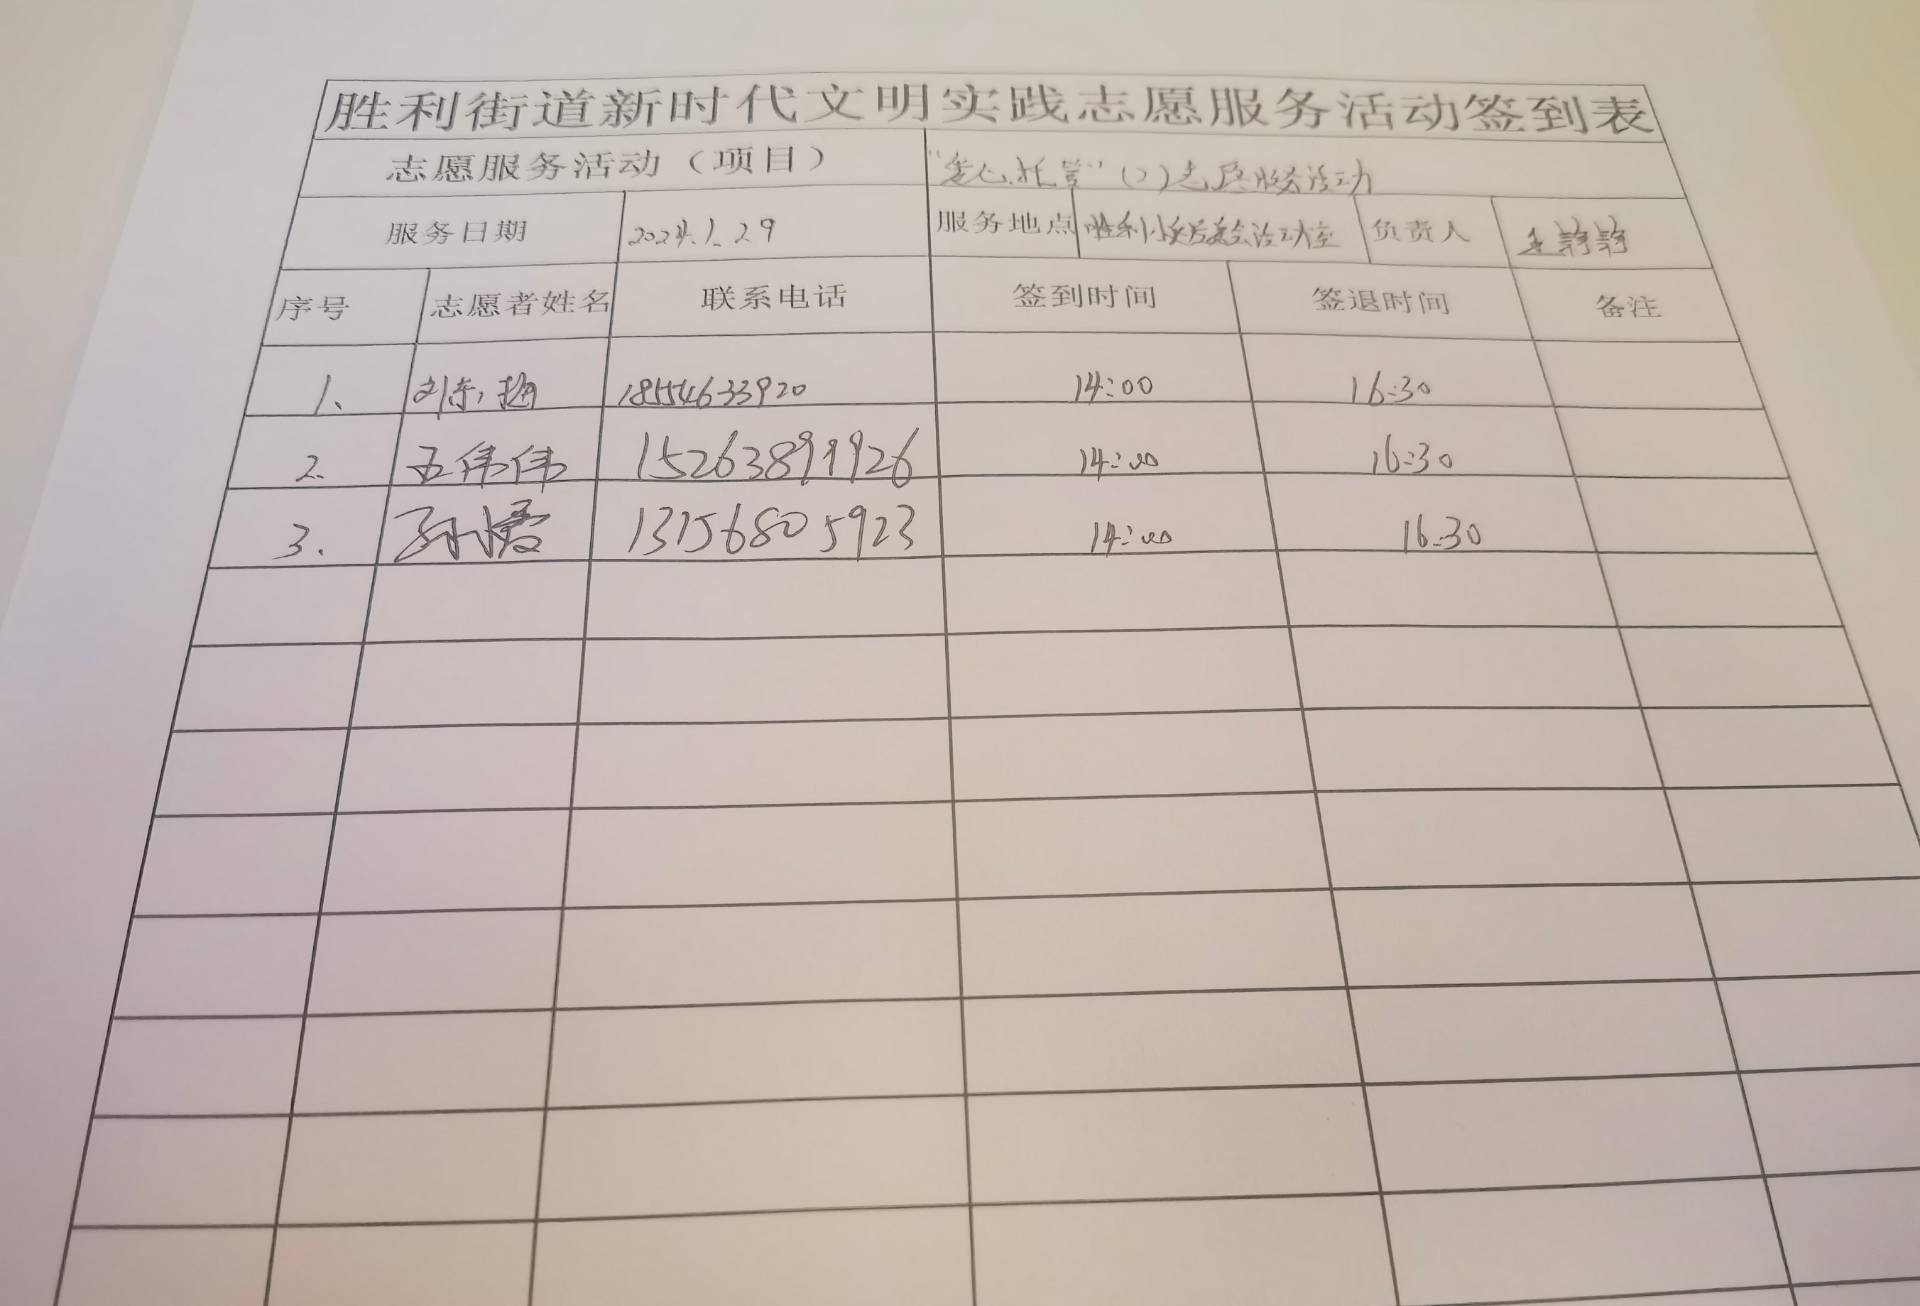 胜利街道新时代文明实践志愿服务活动签到表
志愿服务活动（项目） "爱心托管"（2）志愿服务活动
服务日期 2024.1.29 服务地点 胜利小区居委会活动室 负责人 王静静
序号 志愿者姓名 联系电话 签到时间 签退时间 备注
1、 刘东梅 18554633920 14:00 16:30
2. 王伟伟 15263899926 14:00 16:30
3. 孙爱 13156805923 14:00 16:30